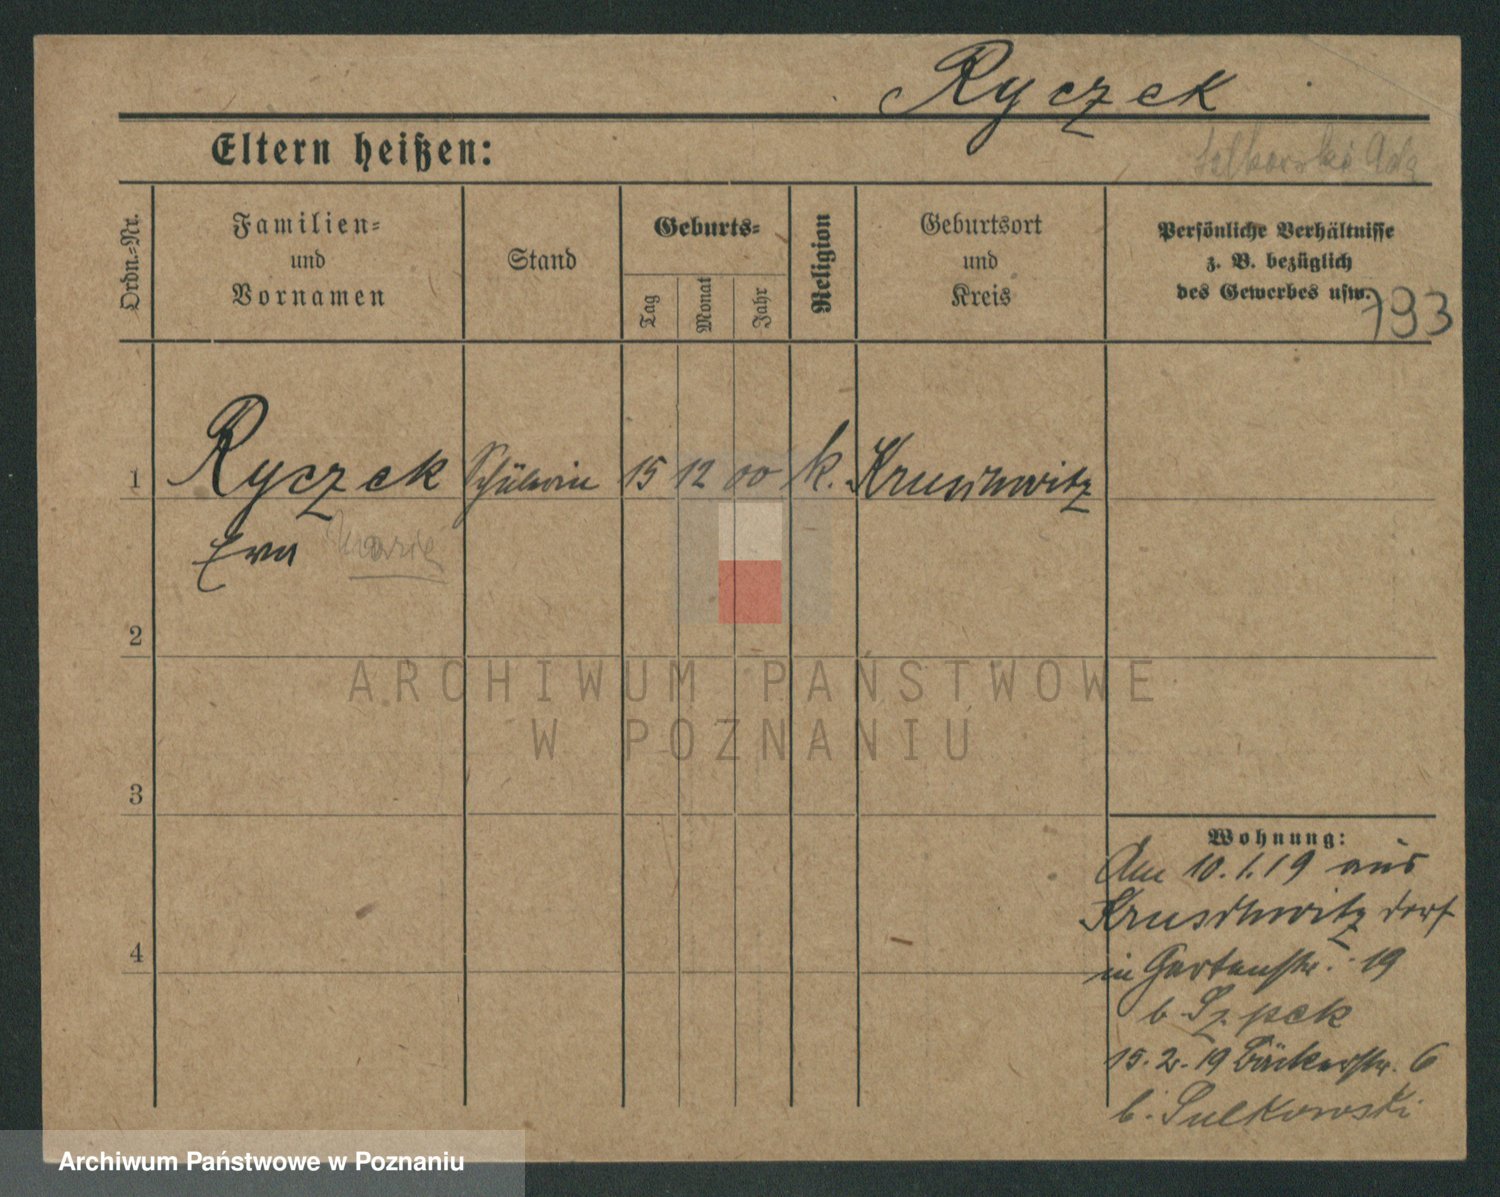 Ryczek
Eltern heißen:
Ordn.-Nr.
Familien-
und
Vornamen
Stand
Geburts-
Tag
Monat
Jahr
Religion
Geburtsort
und
Kreis
Persönliche Verhältnisse
z. B. bezüglich
des Gewerbes usw.
793
1 Ryczek Schülerin 15 12 00 k. Kruschwitz
Eva Marie
2
ARCHIWUM PAŃSTWOWE
W POZNANIU
3
Wohnung:
Am 10.1.19 aus
Kruschwitz dort
4
in Gartenstr. 19
b.
15.2.19 Bäckerstr. 6
b. Sulkowski
Archiwum Państwowe w Poznaniu